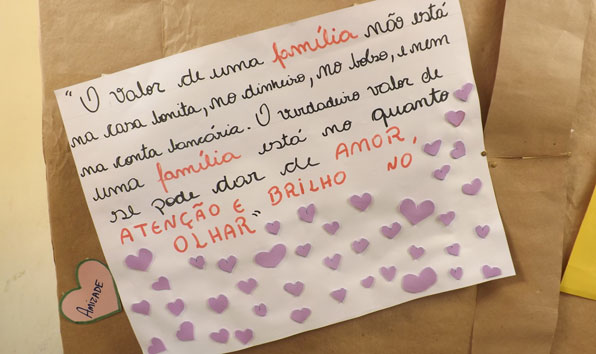 "O valor de uma família não está
na casa bonita, no dinheiro, no bolso, e nem
na conta bancária. O verdadeiro valor de
uma família está no quanto
se pode dar de AMOR,
ATENÇÃO E BRILHO NO
OLHAR"
AMIZADE